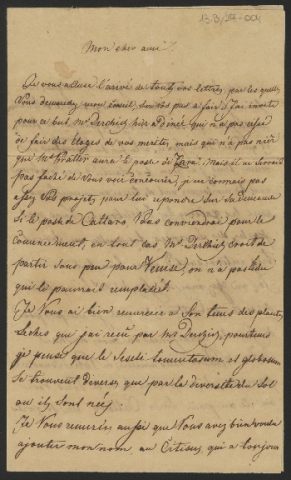 13.B/27-004
Mon cher ami!
Je vous accuse l'arivé de toutes vos letres, par les quelles
Vous demandez mon conseil, sur vos pas a fair. J'ai invité
pour ce but Mr hier a diné, qui n'a pas
de fair des eloges de vos merites, mais qui n'a pas nié
que Mr aura le poste de Zara. Mais il ne seroit
pas faché de Vous voir concourir, je ne connais pas
assez Vos projets, pour lui repondre sur sa demande
Si le poste de Cattaro Vous conviendroit pour le
Comencement, en tout cas Mr doit
partir sans peu pour Venise, on n'a pas
qui le pourroit remplacer.
Je Vous ai bien remercié a Son tems des plantes
seches que j'ai reçu par Mr pourtant
je pense que le Seseli tomentosum et globosum
se trouvent diverses que par la diversité du Sol
ou ils sont nées.
Je Vous remercie aussi que Vous avez bien voulu
ajouter mon nom, au Citisus, qui a toujour